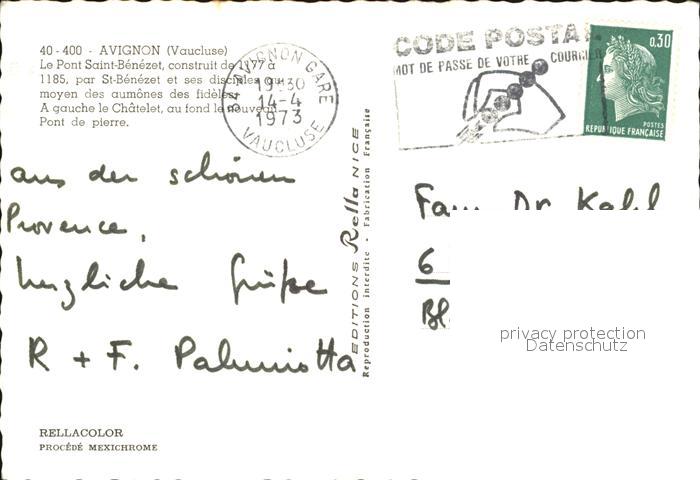 40 - 400 - AVIGNON (Vaucluse)
Le Pont Saint-Bénézet, construit de 1177 à
1185, par St-Bénézet et ses disciples au
moyen des aumônes des fidèles.
A gauche le Châtelet, au fond le nouveau
Pont de pierre.
84 AVIGNON GARE
19H30
14-4
1973
VAUCLUSE
CODE POSTAL
MOT DE PASSE DE VOTRE COURRIER
0,30
POSTES
REPUBLIQUE FRANÇAISE
aus der schönen
Provence,
herzliche Grüße
R + F. Palmiotta
EDITIONS Rella NICE
Reproduction interdite - Fabrication Française
Fam. Dr. Kahl
6
privacy protection
Datenschutz
RELLACOLOR
PROCÉDÉ MEXICHROME